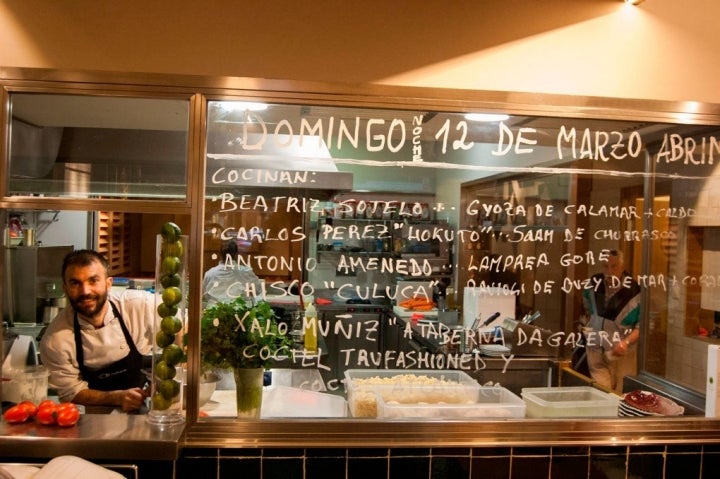 DOMINGO NOCHE 12 DE MARZO ABRIN
COCINAN:
• BEATRIZ SOTELO .. GYOZA DE CALAMAR + CALDO
• CARLOS PEREZ "HOKUTO" .. SAAM DE CHURRASCO
• ANTONIO AMENEDO .. LAMPREA GORE
• CHISCO "CULUCA" .. RAVIOLI DE BUEY DE MAR +
• XALO MUÑIZ "A TABERNA DA GALERA"
COCTEL TRUFASHIONED Y